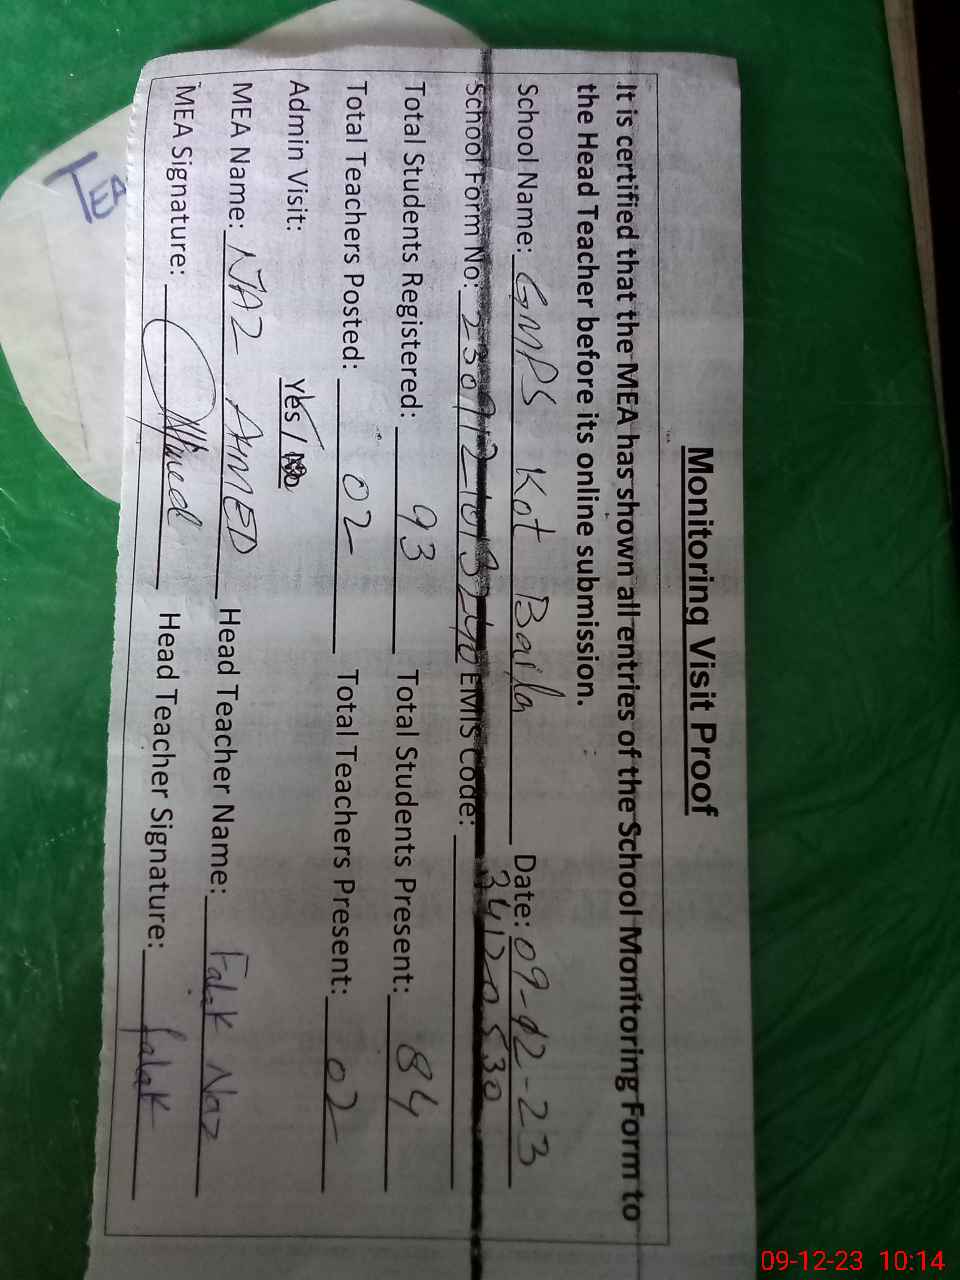 Monitoring Visit Proof
It is certified that the MEA has shown all entries of the School Monitoring Form to
the Head Teacher before its online submission.
School Name: GMPS Kot Baila Date: 09-12-23
School Form No: 230912-1013240 EMIS Code: 34120530
Total Students Registered: 93 Total Students Present: 84
Total Teachers Posted: 02 Total Teachers Present: 02
Admin Visit: Yes / No
MEA Name: NAZ AHMED Head Teacher Name: Falak Naz
MEA Signature: Ahmed Head Teacher Signature: falak
TEA
09-12-23 10:14